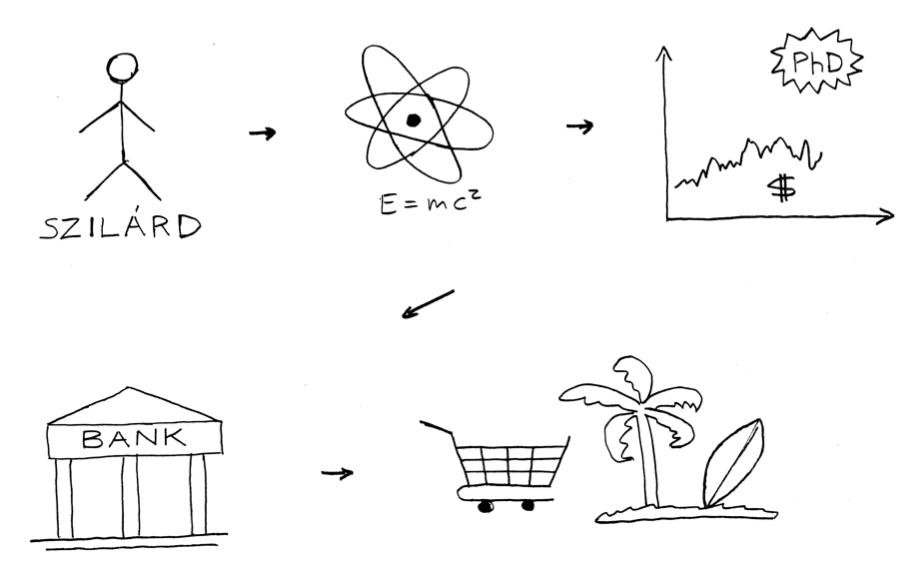 SZILÁRD
E = mc²
PhD
$
BANK